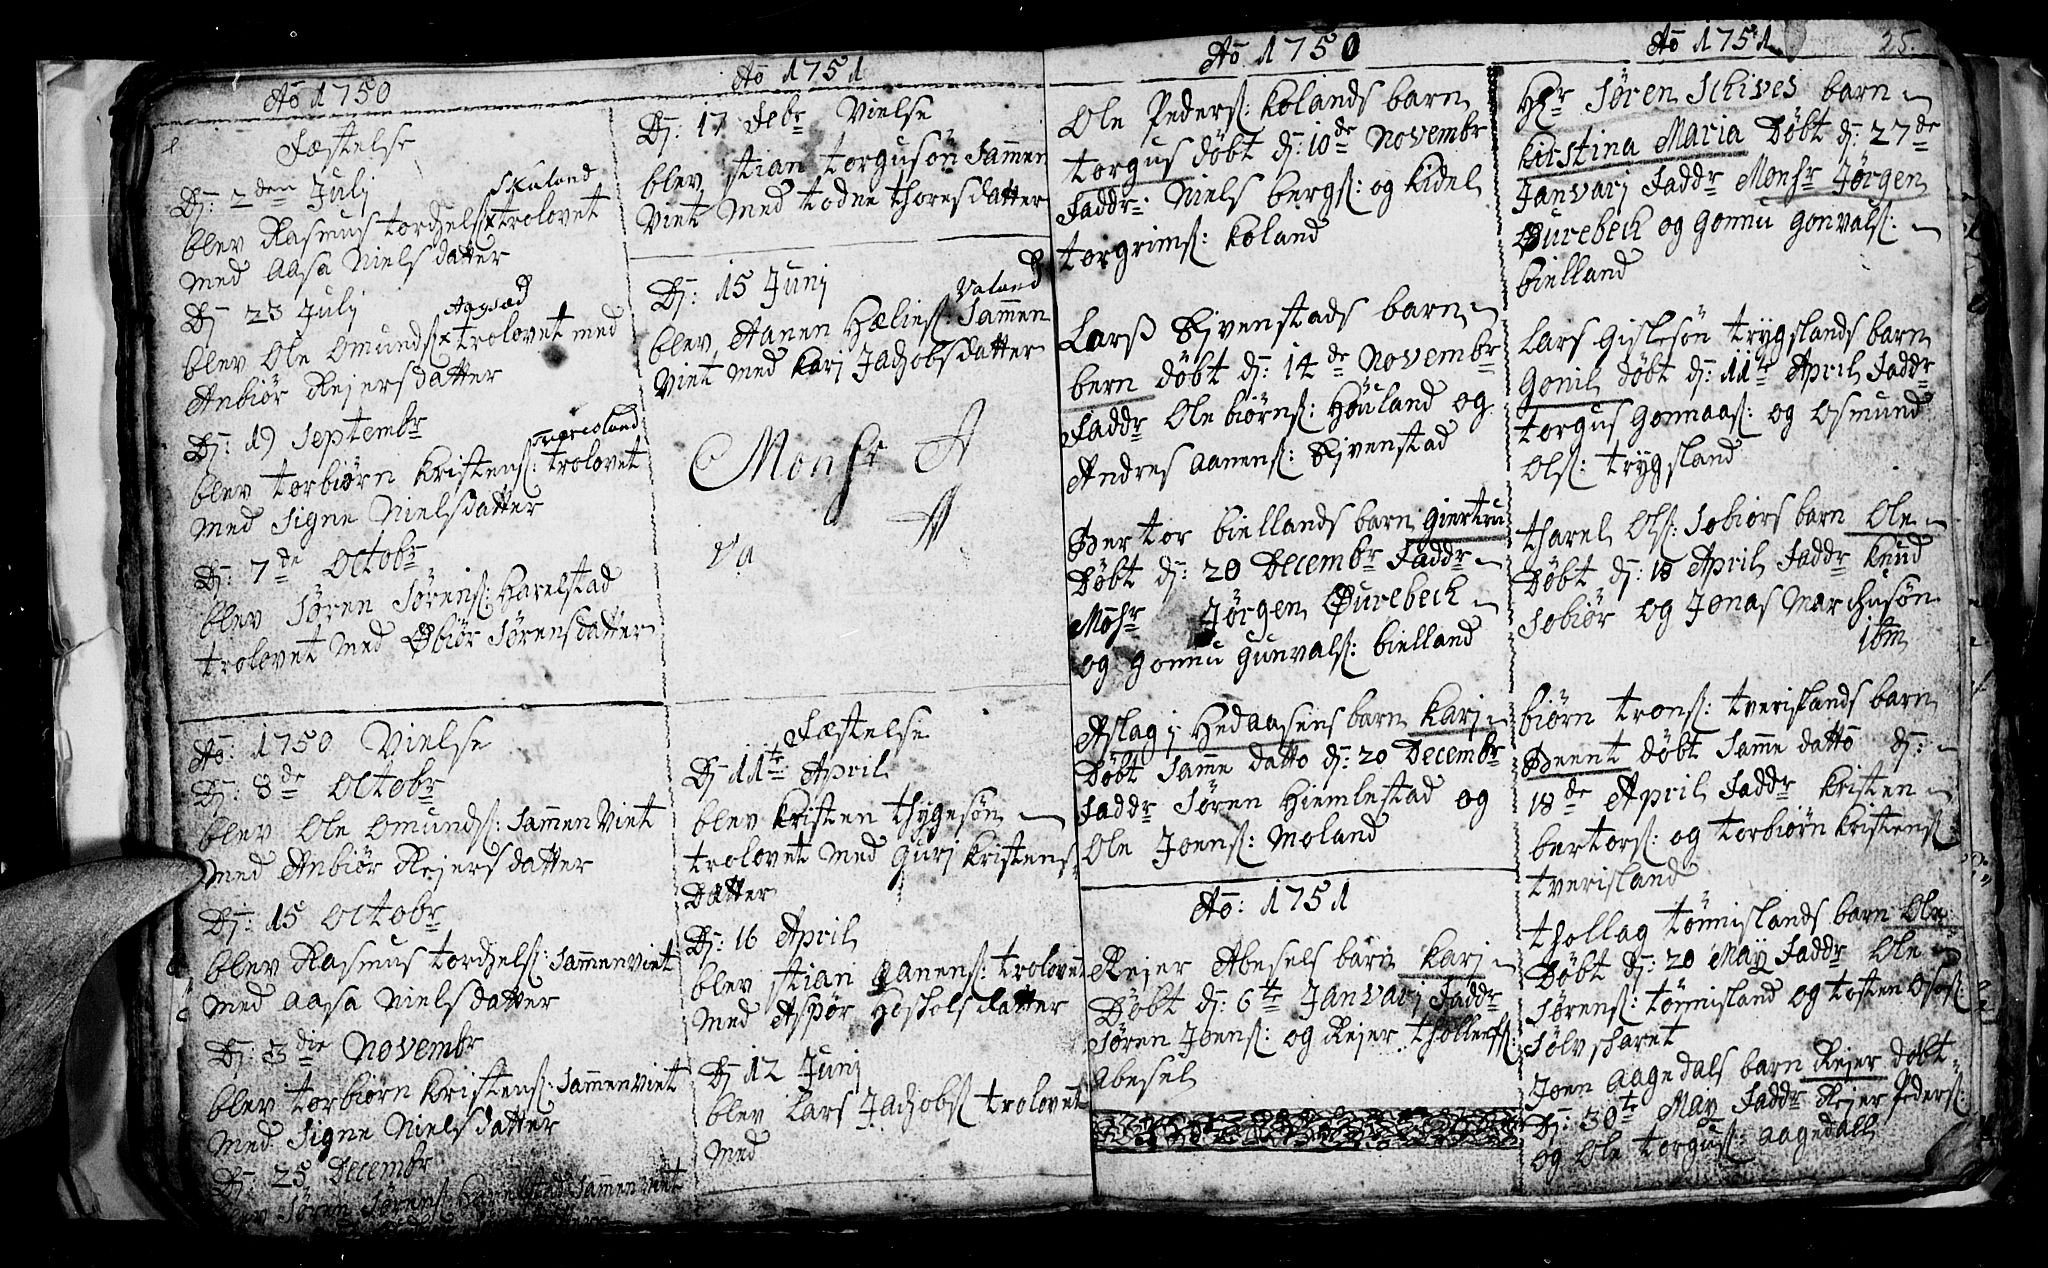 Aō 1750
Fæstelse
Dj: 2den Julj
Skuland
blev Rasmus tordzels: trolovet
med Aasa Nielsdatter
Dj 23 Julj
blev Ole Omunds: trolovet med
Anbiør Rejersdatter
Dj: 19 Septembr
blev torbiørn Kristens: trolovet
med Signe Nielsdatter
Dj: 7de Octobr
blev Søren Sørens: Harelstad
trolovet med Øbiør Sørensdatter
Aō: 1750 Vielse
Dj: 8de Octobr
blev Ole Omunds: Sammen Viet
med Anbiør Rejersdatter
Dj: 15 Octobr
blev Rasmus tordzels: Sammenviet
med Aasa Nielsdatter
Dj: 3die Novembr
blev torbiørn Kristens: Sammenviet
med Signe Nielsdatter
Dj: 25 Decembr
blev Søren Sørens: Harelstad Sammenviet
Aō 1751
Dj: 17 Febr Vielse
blev Stian torgusøn Sammen
Viet med todne thoresdatter
Dj: 15 Junj
Valand
blev Aanen Hælies: Sammen
Viet med Karj Jachobsdatter
Monsr A
A
Va
Fæstelse
Dj 11te April
blev Kristen thygesøn
trolovet med Gurj Kristens
Datter
Dj: 16 April
blev Stian Aanens: trolovet
med Aspør Hoskolsdatter
Dj 12 Junj
blev Lars Jachobs trolovet
med
Aō 1750
Ole Peders: Kolands barn
torgus døbt dj: 10de Novembr
Faddr: Niels bergs: og Kidel
torgrims: Koland
Larss Øjvenstads barn
bern døbt dj: 14de Novembr
Faddr Ole biørns: Høuland og
Andres Aanens: Øjvenstad
Bertor biellands barn Giertru
Døbt dj: 20 Decembr Faddr
Mohr Jørgen Øurebeck
og Gonnu Gunvals: bielland
Aslag j Hedaasens barn Karj
Døbt Samme datto dj: 20 Decembr
Faddr Søren Hiemlestad og
Ole Joens: Moland
Aō: 1751
Rejer Abesels barn Karj
Døbt dj: 6te Janvarj Faddr
Søren Joens: og Rejer tholleffs:
Abesel
Aō 1751
25.
Hr Søren Schives barn
Kirstina Maria Døbt dj: 27de
Janvarj Faddr Monsr Jørgen
Øurebeck og Gonnu Gonvals:
bielland
Lars Gislesøn trygslands barn
Gonil døbt dj: 11te April Faddr
torgus Gonnaas: og Osmund
Ols: trygsland
tharel Ols: Sobiørs barn Ole
Døbt dj: 18 April Faddr Knud
Sobiør og Jonas Marchusøn
ibm
biørn trons: tverislands barn
Beent døbt Samme datto dj:
18de April Faddr Kristen
bertors: og torbiørn Kristens:
tverisland
thollag tønnislands barn Ole
Døbt dj: 20 May Faddr Ole
Sørens: tønnisland og tosten Osos:
Sølvscharet
Joen Aagedals barn Rejer døbt
Dj: 30te May Faddr Rejer Peders:
og Ole torgus: Aagedall